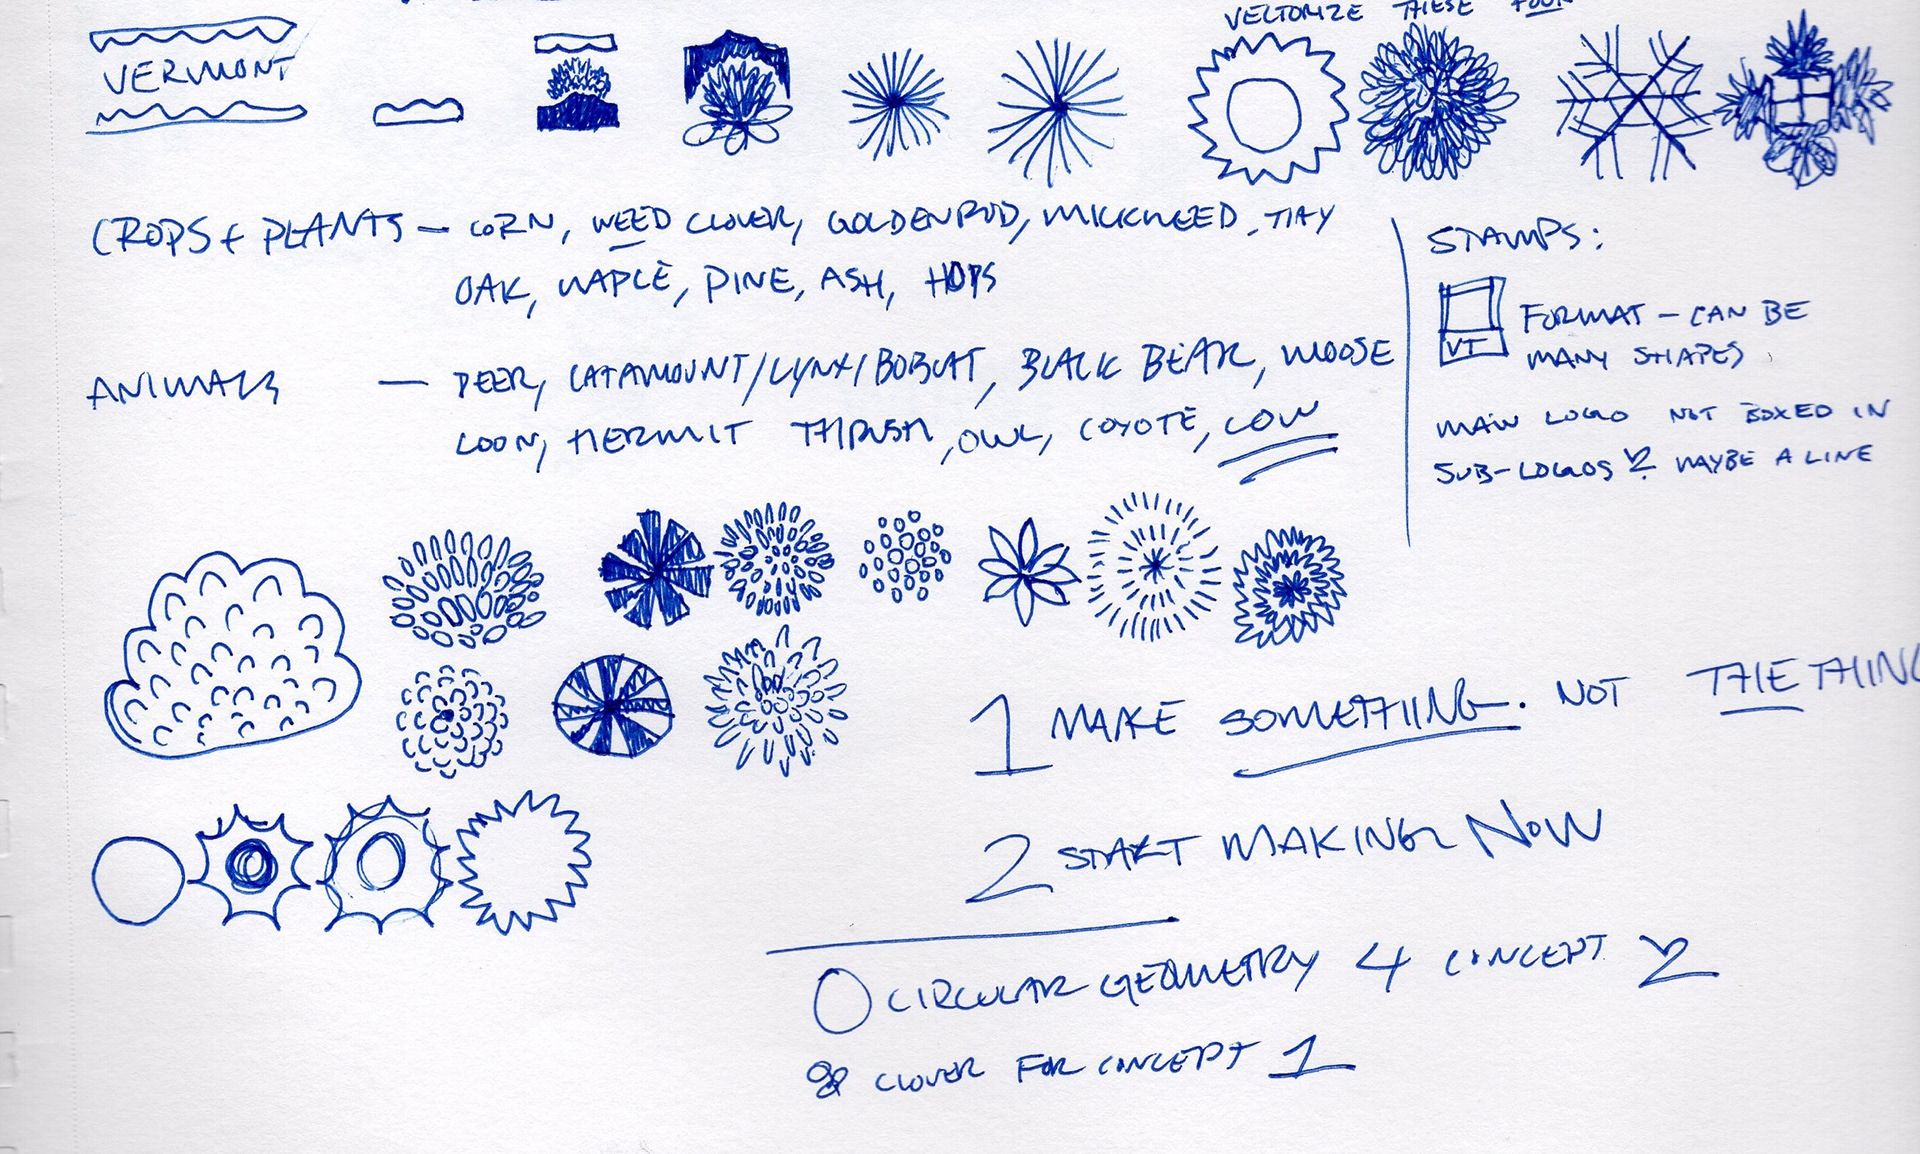 VECTORIZE THESE FOUR
VERMONT
CROPS & PLANTS — CORN, WEED CLOVER, GOLDENROD, MILKWEED,
OAK, MAPLE, PINE, ASH, HOPS
ANIMALS — DEER, CATAMOUNT/LYNX/BOBCAT, BLACK BEAR, MOOSE
LOON, HERMIT THRUSH, OWL, COYOTE, COW
STAMPS:
VT
FORMAT — CAN BE
MANY SHAPES
MAIN LOGO NOT BOXED IN
SUB-LOGOS MAYBE A LINE
1 MAKE SOMETHING. NOT THE THING
2 START MAKING NOW
CIRCULAR GEOMETRY 4 CONCEPT 2
CLOVER FOR CONCEPT 1